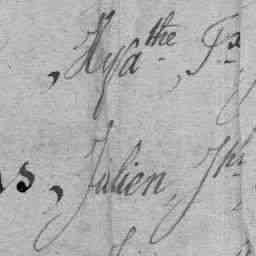 , Hyathe, Pa
s, Julien, Jph